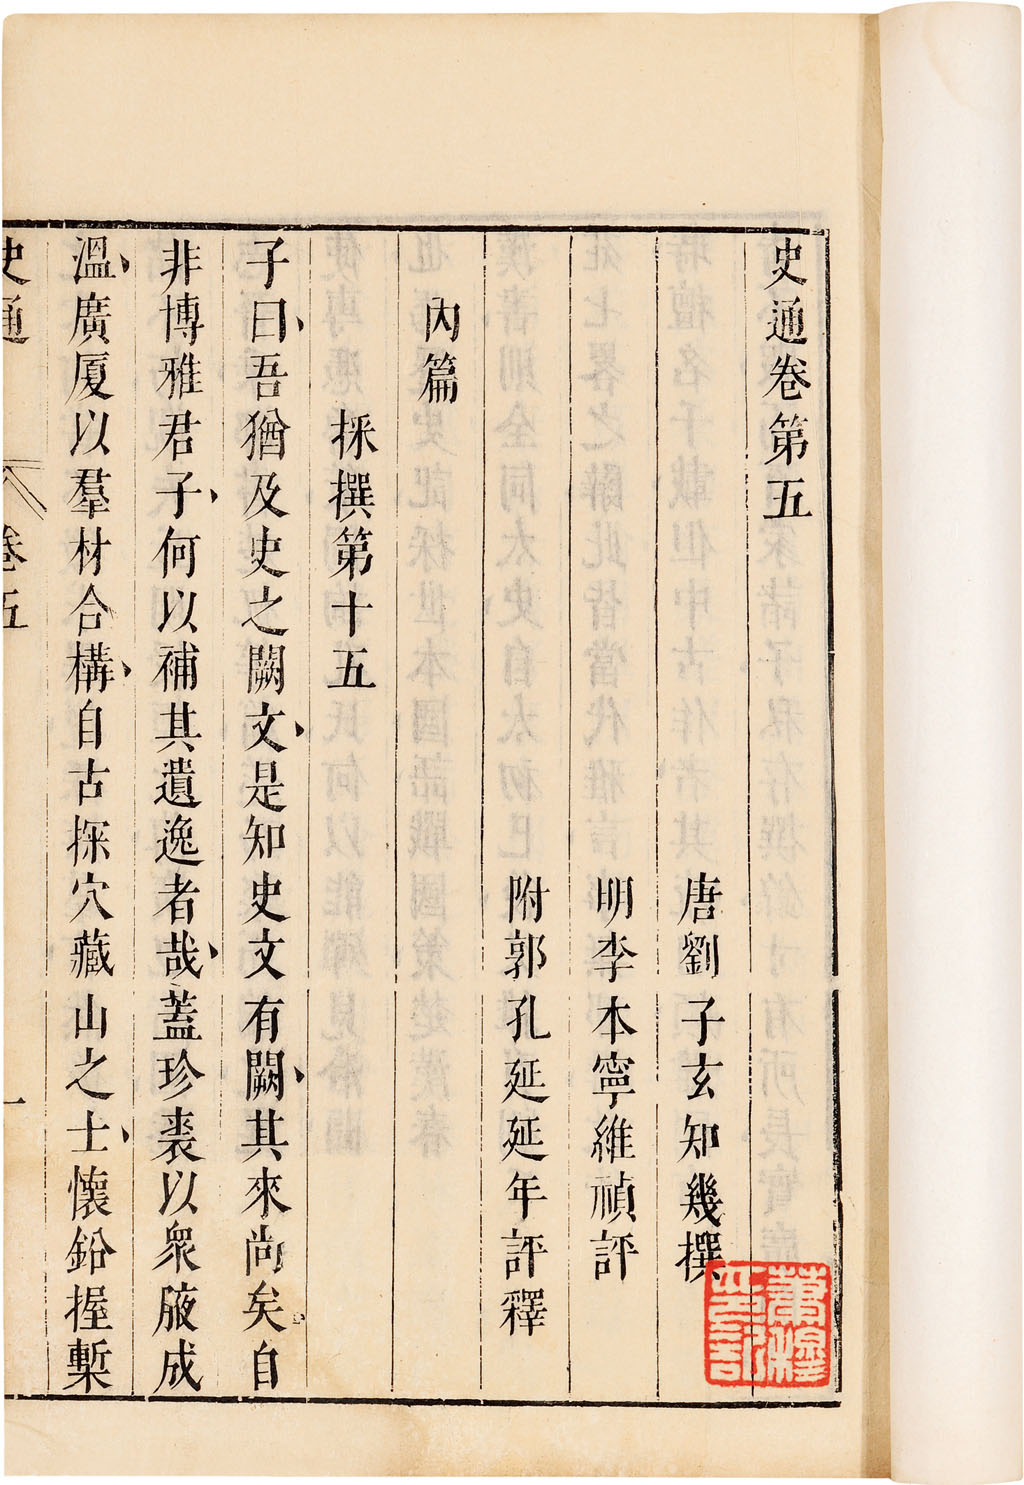 史通卷第五
唐劉子玄知幾撰
明李本寧維禎評
附郭孔延延年評釋
內篇
採撰第十五
子曰吾猶及史之闕文是知史文有闕其來尚矣自
非博雅君子何以補其遺逸者哉蓋珍裘以衆腋成
溫廣厦以羣材合構自古探穴藏山之士懷鉛握槧
史通
卷五
一
蕭穆
印記